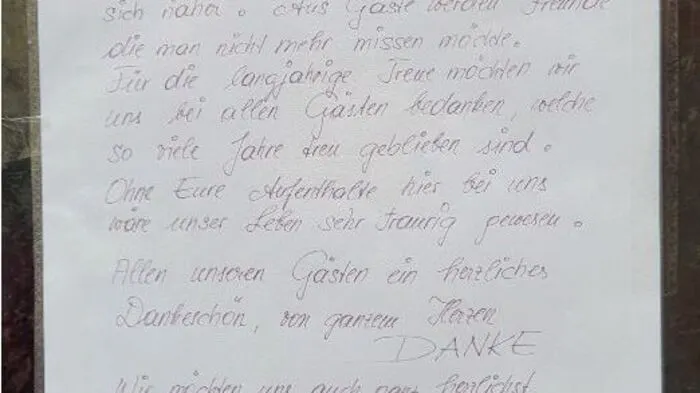 sich näher. Aus Gäste werden Freunde
die man nicht mehr missen möchte.
Für die langjährige Treue möchten wir
uns bei allen Gästen bedanken, welche
so viele Jahre treu geblieben sind.
Ohne Eure Aufenthalte hier bei uns
wäre unser Leben sehr traurig gewesen.
Allen unseren Gästen ein herzliches
Dankeschön, von ganzem Herzen
DANKE
Wir möchten uns auch ganz herzlichst